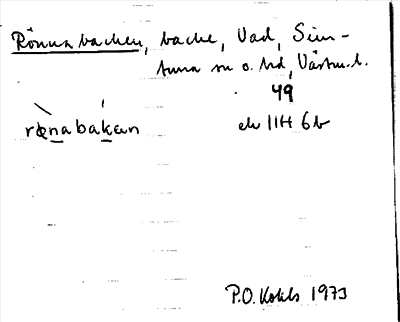 Rönnabacken, backe, Vad, Sim-
tuna sn o. hd, Västm.l.
49
rønabakan
ek 11H 6b
P.O. Kohls 1973